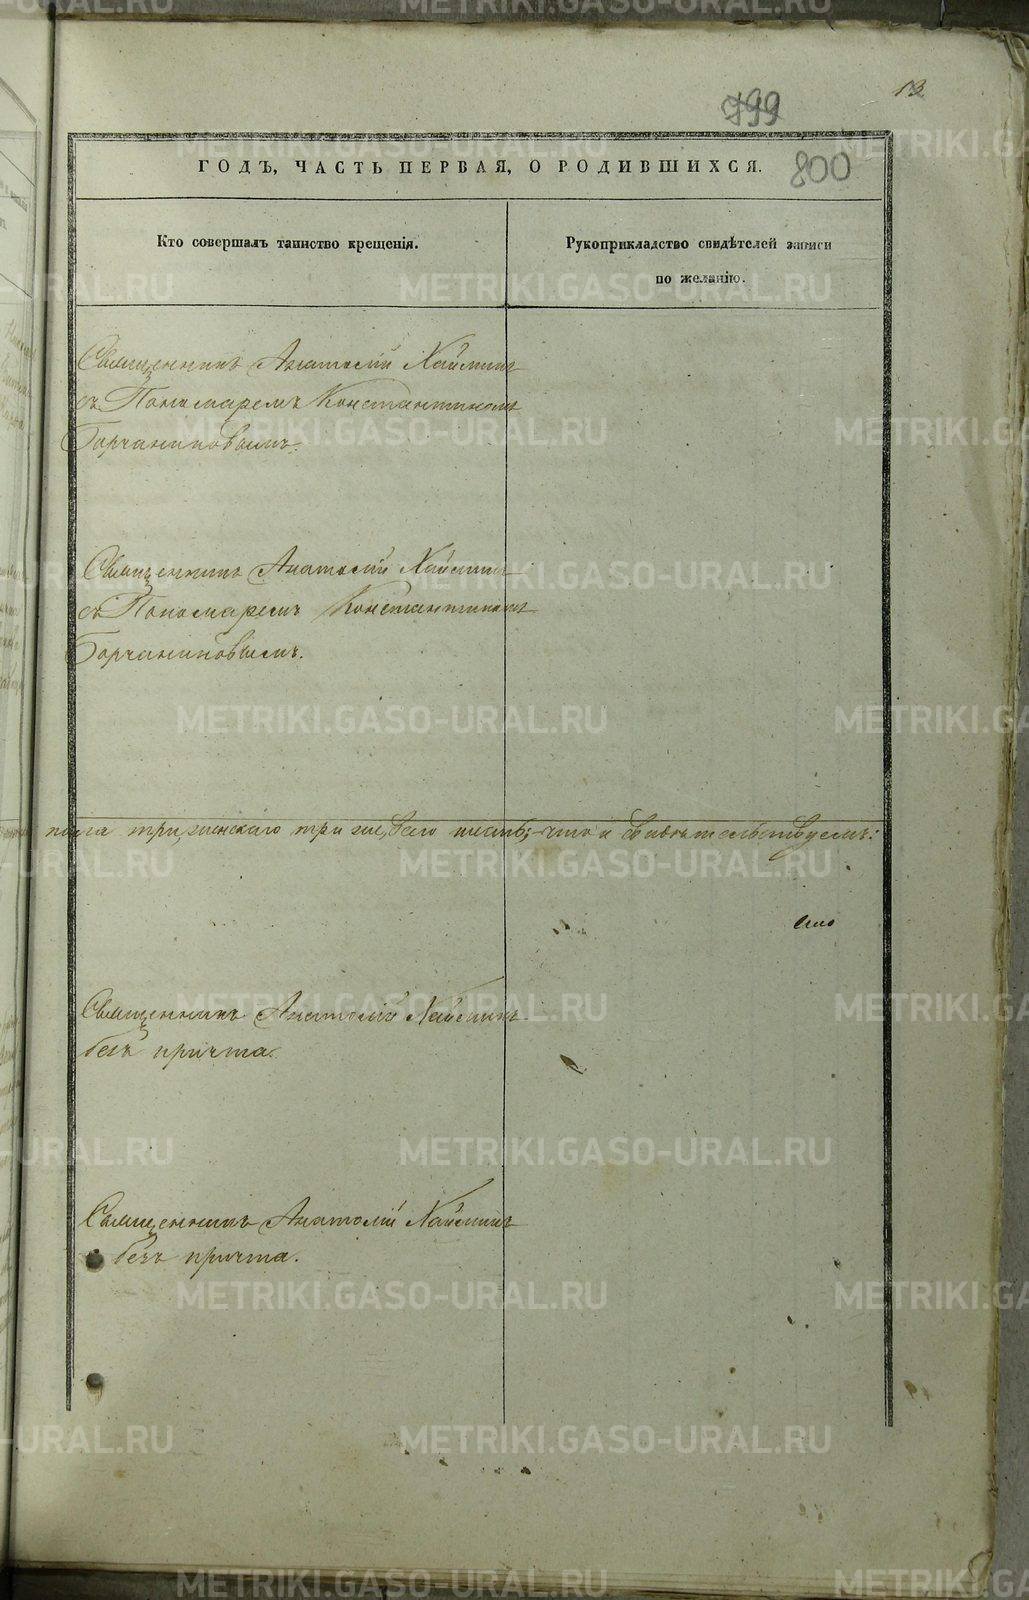 13
799
800
ГОДЪ, ЧАСТЬ ПЕРВАЯ, О РОДИВШИХСЯ.
Кто совершалъ таинство крещенія.
Рукоприкладство свидѣтелей записи
по желанію.
Священникъ Анатолій Хаймин
съ Пономаремъ Константиномъ
Борчаниновымъ.
Священникъ Анатолій Хаймин
съ Пономаремъ Константиномъ
Борчаниновымъ.
пола три, женскаго три же, всего шесть; что и свидѣтельствуемъ:
Священникъ Анатолій Хаймин
безъ причта.
Священникъ Анатолій Хаймин
безъ причта.
METRIKI.GASO-URAL.RU